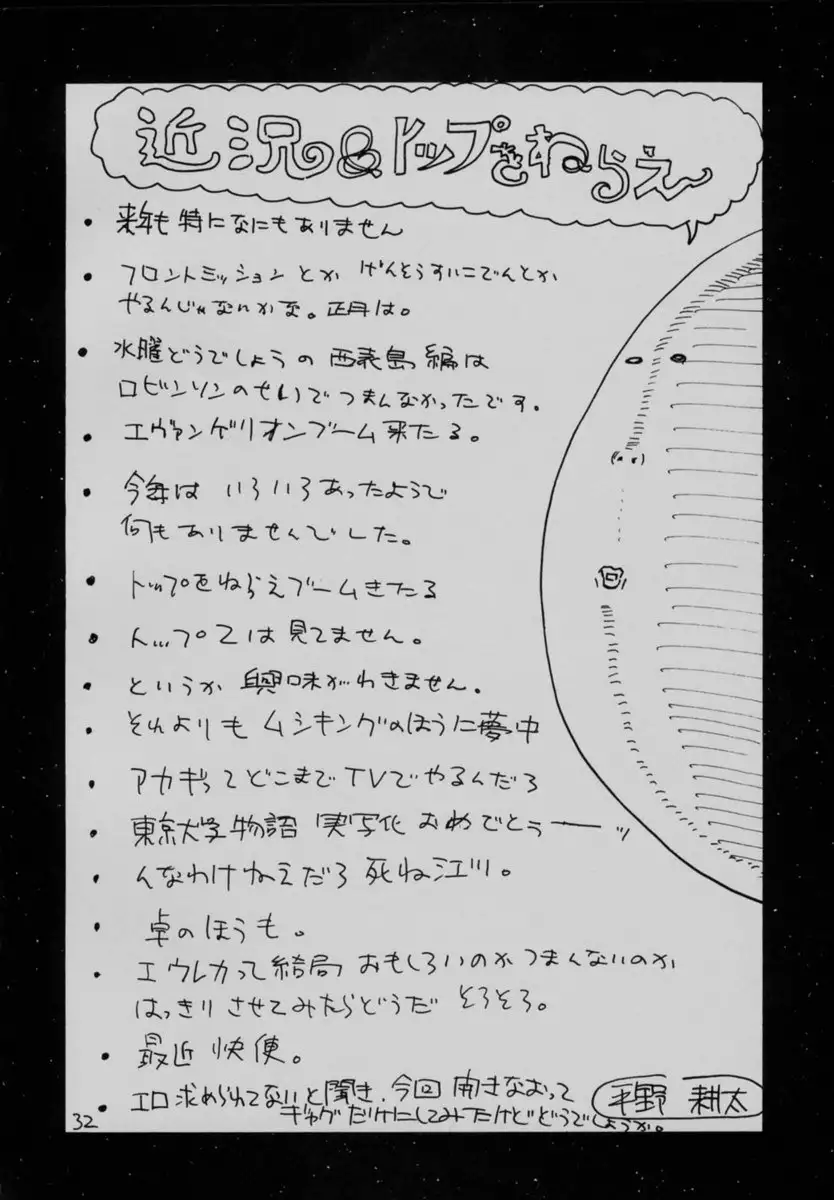 近況&トップをねらえ〜
・来年も特になにもありません
・フロントミッションとか げんそうすいこでんとか
やるんじゃないかな。正月は。
・水曜どうでしょうの 西表島編は
ロビンソンのせいでつまんなかったです。
・エヴァンゲリオンブーム来たる。
・今年は いろいろあったようで
何もありませんでした。
・トップをねらえブームきたる
・トップ2は見てません。
・というか 興味がわきません。
・それよりも ムシキングのほうに夢中
・アカギってどこまでTVでやるんだろ
・東京大学物語 実写化 おめでとぅーーッ
・んなわけねえだろ 死ね江川。
・卓のほうも。
・エウレカって結局 おもしろいのか つまんないのか
はっきり させてみたらどうだ そろそろ。
・最近 快便。
・エロ求められてないと聞き、今回 開きなおって
ギャグだけにしてみたけどどうでしょうか。
平野 耕太
32